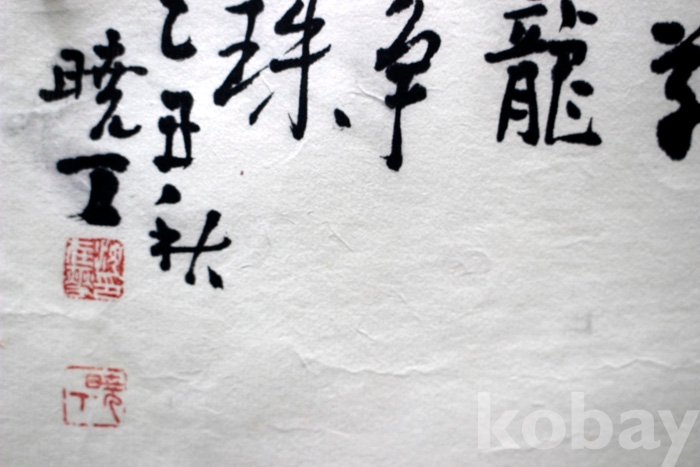 龍
争
珠
乙丑秋
曉丁
曉丁
kobay